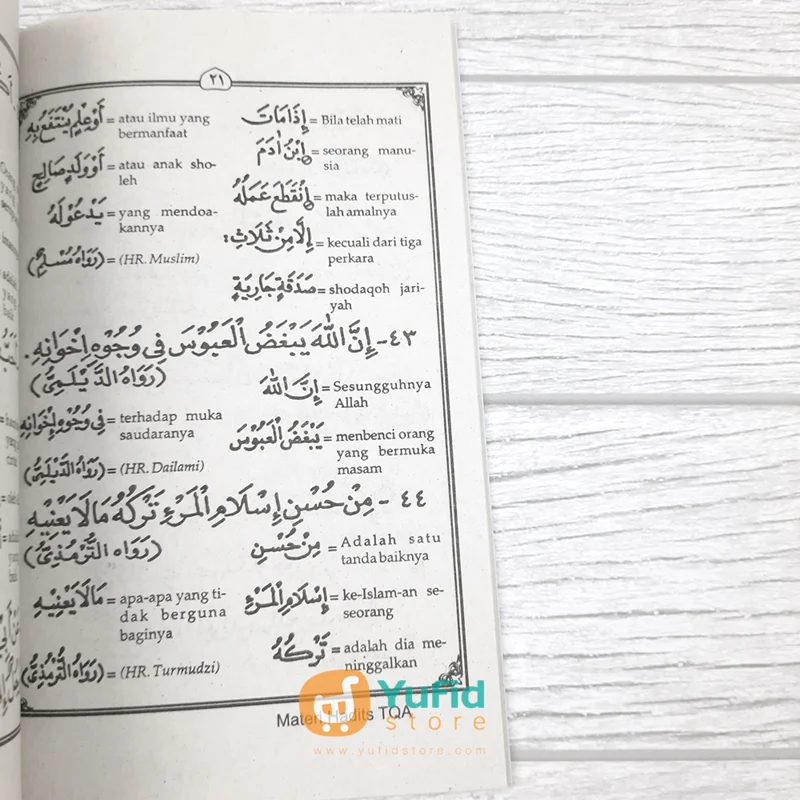 ٢١
إِذَا مَاتَ = Bila telah mati
اِبْنُ اٰدَمَ = seorang manu-
sia
اِنْقَطَعَ عَمَلُهُ = maka terputus-
lah amalnya
إِلَّا مِنْ ثَلَاثٍ: = kecuali dari tiga
perkara
صَدَقَةٍ جَارِيَةٍ = shodaqoh jari-
yah
أَوْ عِلْمٍ يُنْتَفَعُ بِهِ = atau ilmu yang
bermanfaat
أَوْ وَلَدٍ صَالِحٍ = atau anak sho-
leh
يَدْعُو لَهُ = yang mendoa-
kannya
(رَوَاهُ مُسْلِمٌ) = (HR. Muslim)
٤٣- إِنَّ اللّٰهَ يَبْغَضُ الْعَبُوْسَ فِي وُجُوْهِ إِخْوَانِهِ.
(رَوَاهُ الدَّيْلَمِيُّ)
إِنَّ اللّٰهَ = Sesungguhnya
Allah
يَبْغَضُ الْعَبُوْسَ = menbenci orang
yang bermuka
masam
فِي وُجُوْهِ إِخْوَانِهِ = terhadap muka
saudaranya
(رَوَاهُ الدَّيْلَمِيُّ) = (HR. Dailami)
٤٤ - مِنْ حُسْنِ إِسْلَامِ الْمَرْءِ تَرْكُهُ مَا لَا يَعْنِيْهِ
(رَوَاه التُّرْمُذِيُّ)
مِنْ حُسْنِ = Adalah satu
tanda baiknya
إِسْلَامِ الْمَرْءِ = ke-Islam-an se-
seorang
تَرْكُهُ = adalah dia me-
ninggalkan
مَا لَا يَعْنِيْهِ = apa-apa yang ti-
dak berguna
baginya
(رَوَاهُ التُّرْمُذِيُّ) = (HR. Turmudzi)
Materi Hadits TQA
Yufid
store
www.yufidstore.com